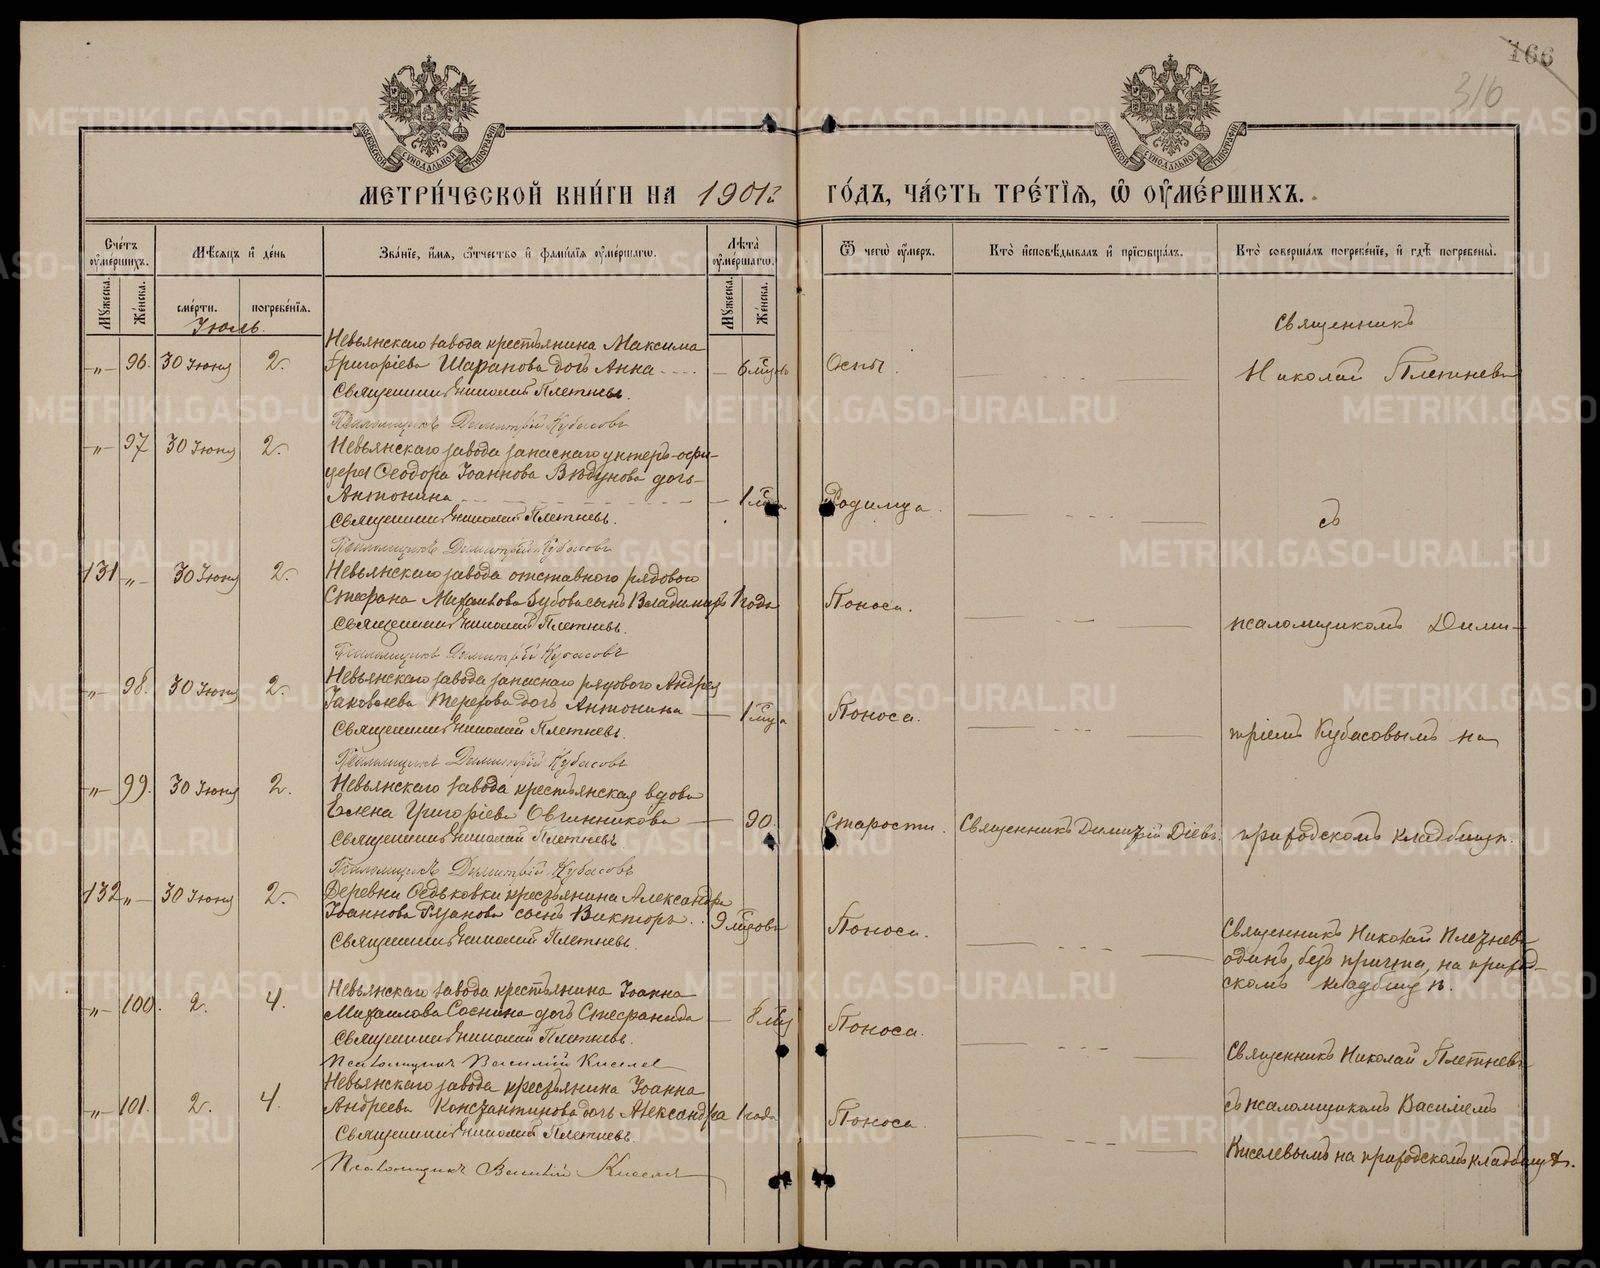 166
316
МЕТРИ́ЧЕСКОЙ КНИ́ГИ НА 1901 г. ГО́ДЪ, ЧА́СТЬ ТРЕ́ТІЯ, Ѡ ОУМЕ́РШИХЪ.
Сче́тъ оумершихъ.
Мужеска.
Женска.
Мѣсяцъ и день
смерти.
погребенія.
Званіе, имя, отчество и фамилія оумершагѡ.
Лѣта оумершагѡ.
Мужеска.
Женска.
Ѿ чегѡ оумеръ.
Кто исповѣдывалъ и пріобщалъ.
Кто совершалъ погребеніе, и гдѣ погребены.
Іюль.
-"- 96. 30 Іюня 2.
Невьянскаго завода крестьянина Максима
Григоріева Шарапова дочь Анна - 6 мцовъ Оспы.
Священникъ Николай Плетневъ.
Псаломщикъ Димитрій Кубасовъ
-"- 97 30 Іюня 2.
Невьянскаго завода запаснаго унтеръ-офи-
цера Ѳеодора Іоаннова дочь
Антонина - 1 мца Родимца.
Священникъ Николай Плетневъ.
Псаломщикъ Димитрій Кубасовъ
131 -"- 30 Іюня 2.
Невьянскаго завода отставного рядового
Стефана Михаилова Зубова сынъ Владимиръ 1 года Поноса.
Священникъ Николай Плетневъ.
Псаломщикъ Димитрій Кубасовъ
-"- 98. 30 Іюня 2.
Невьянскаго завода запаснаго рядового Андрея
Іаковлева дочь Антонина - 1 мца Поноса.
Священникъ Николай Плетневъ.
Псаломщикъ Димитрій Кубасовъ
-"- 99. 30 Іюня 2.
Невьянскаго завода крестьянская вдова
Елена Григоріева Овчинникова - 90. Старости. Священникъ Димитрій Діевъ.
Священникъ Николай Плетневъ.
Псаломщикъ Димитрій Кубасовъ
132 -"- 30 Іюня 2.
Деревни Ѳедьковки крестьянина Александра
Іоаннова сынъ Викторъ. 9 мцовъ Поноса.
Священникъ Николай Плетневъ.
-"- 100. 2. 4.
Невьянскаго завода крестьянина Іоанна
Михаилова Соснина дочь Стефанида - 8 мц Поноса.
Священникъ Николай Плетневъ.
Псаломщикъ Василій Киселев
-"- 101. 2. 4.
Невьянскаго завода крестьянина Іоанна
Андреева Константинова дочь Александра 1 года Поноса.
Священникъ Николай Плетневъ.
Псаломщикъ Василій Киселев
Священникъ
Николай Плетневъ
съ
псаломщикомъ Дими-
тріемъ Кубасовымъ на
приходскомъ кладбищѣ.
Священникъ Николай Плетневъ
одинъ, безъ причта, на приход-
скомъ кладбищѣ.
Священникъ Николай Плетневъ
съ псаломщикомъ Василіемъ
Киселевымъ на приходскомъ кладбищѣ.
METRIKI.GASO-URAL.RU